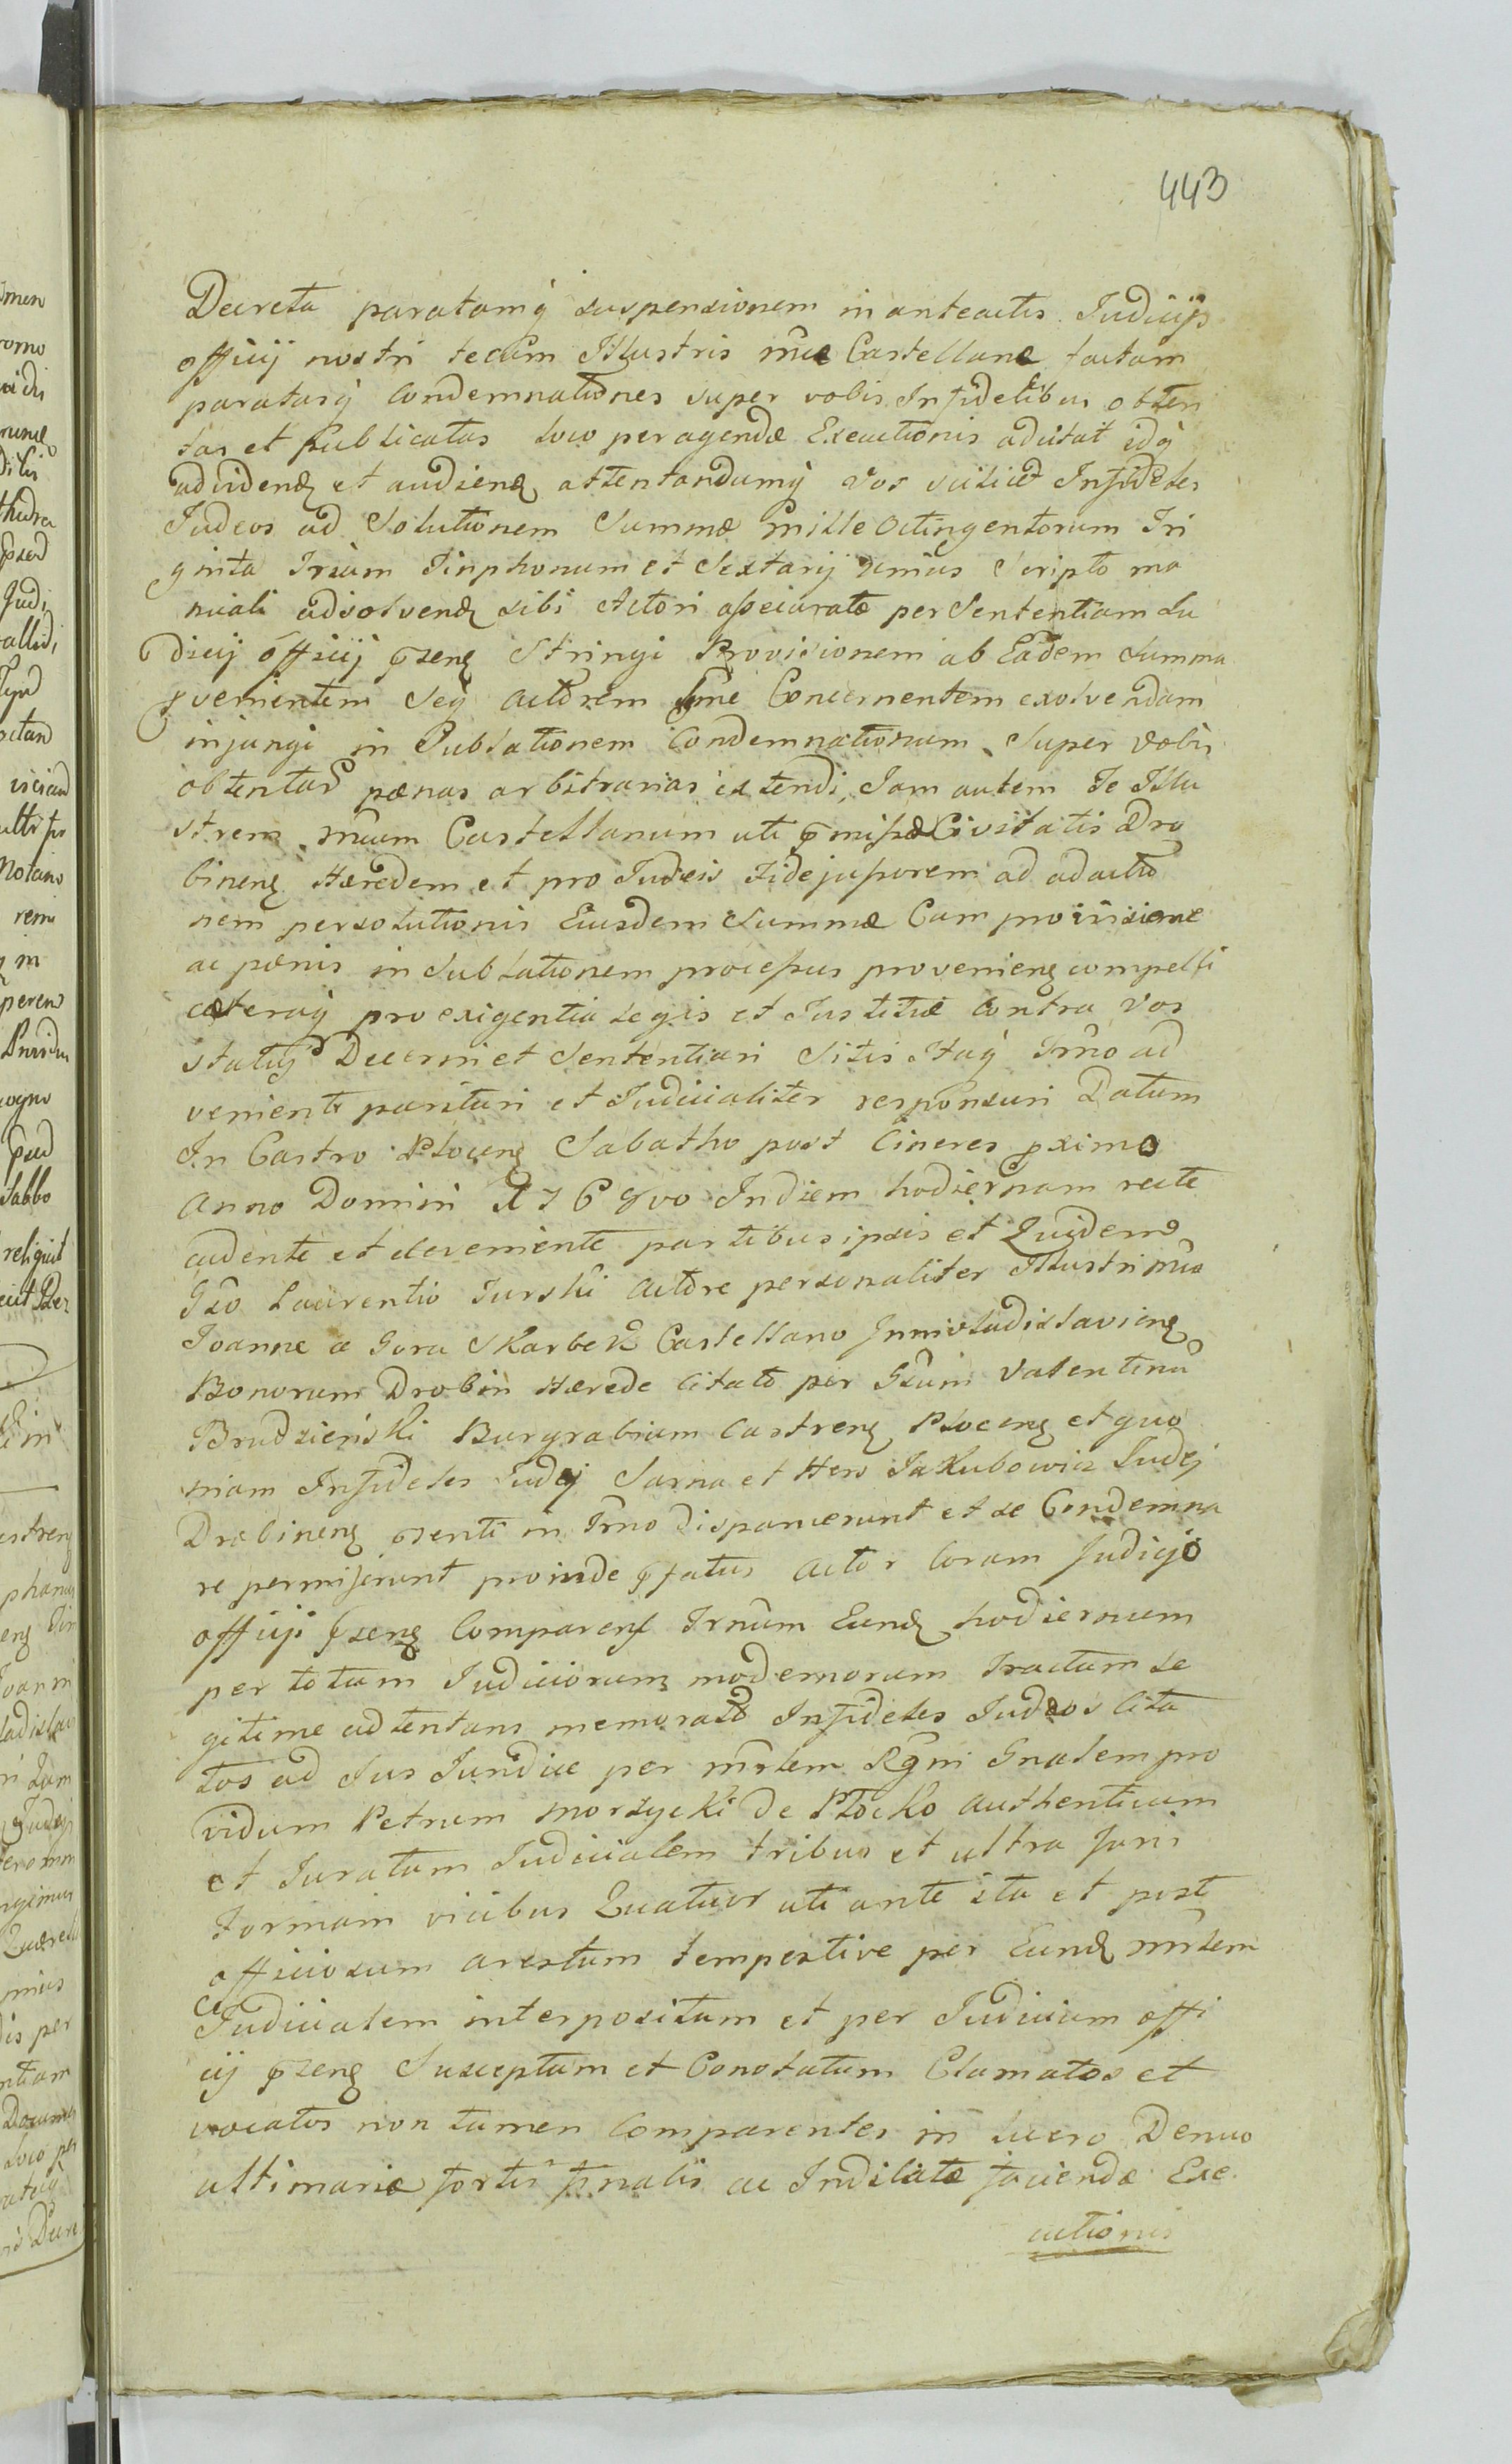 443
Decreta paratamq̃ suspensionem in anteactis Judicijs
officij nostri tecum Illustris mŭe Castellane factam
paratasq̃ Condemnationes super vobis Infidelibus obten
tas et publicatas loco peragendæ Executionis aducitat idq̃
ad videnḍ et audienḍ attentandumq̃ vos scilicet Infideles
Judeos ad Solutionem Summæ mille octingentorum Tri
ginta Trium Tinphonum et Sextarij unius Scripto ma
nuali adsolvenḍ sibi Actori asseciuratæ per Sententiam Ju
dicij officij p̃senṣ Stringi Provisionem ab Eadem Summa
p̃venientem Seq̃ actorem Concernentem exolvendam
injungi in Sublationem Condemnationum Super vobis
obtentar̃ pænas arbitrarias extendi, Jam autem Te Illu
strem mŭum Castellanum uti p̃missæ Civitatis Dro
binenṣ Hæredem et pro Judeis Fidejussorem ad adactio
nem persolutionis Eiusdem Summæ Cum provisione
ac pænis in Sublationem processus provenienṣ compelli
cæteraq̃ pro exigentia Legis et Justitiæ Contra Vos
Statuj Decerni et Sententiari Sitis Itaq̃ Trño ad
venienti parituri et Judicialiter responsuri Datum
In Castro Plocenṣ Sabatho post Cineres p̃ximo
Anno Domini quo Indiem hodiernam recte
cadente et deveniente partibus ipsis et Quidem
Gso Laurentio Turski Actore personaliter Illustri mŭo
Joanne a Gora Skarbek Castellano Junivladislavienṣ
Bonorum Drobin Hærede Citato per Gsum Valentinũ
Brudzieński Burgrabium Castrenṣ Plocenṣ et quo
niam Infideles Judej Sarna et Hers Jakubowicz Judej
Drobinenṣ p̃senti in Trño disparuerunt et se Condemna
re permiserunt proinde p̃fatus Actor Coram Judicjo
officij p̃senṣ Comparens Trñum Eunḍ hodiernum
per totum Judiciorum modernorum Tractum Le
gitime adtentans memorato Infideles Judæos Cita
tos ad Jus Juridice per mr̃lem Rg̃ni Gnalem pro
vidum Petrum Morzycki de Płocko authenticum
et Juratum Judicialem tribus et ultra Juris
Formam vicibus Quatuor uti ante ita et post
officiosum arestum tempestive per Eunḍ mr̃lem
Judicialem interpositum et per Judicium offi
cij p̃senṣ Susceptum et Conotatum Clamatos et
vocatos non tamen Comparentes in lucro Denuo
ultimariæ fortis pænalis ac Indilatæ faciendæ Exe
cutionis